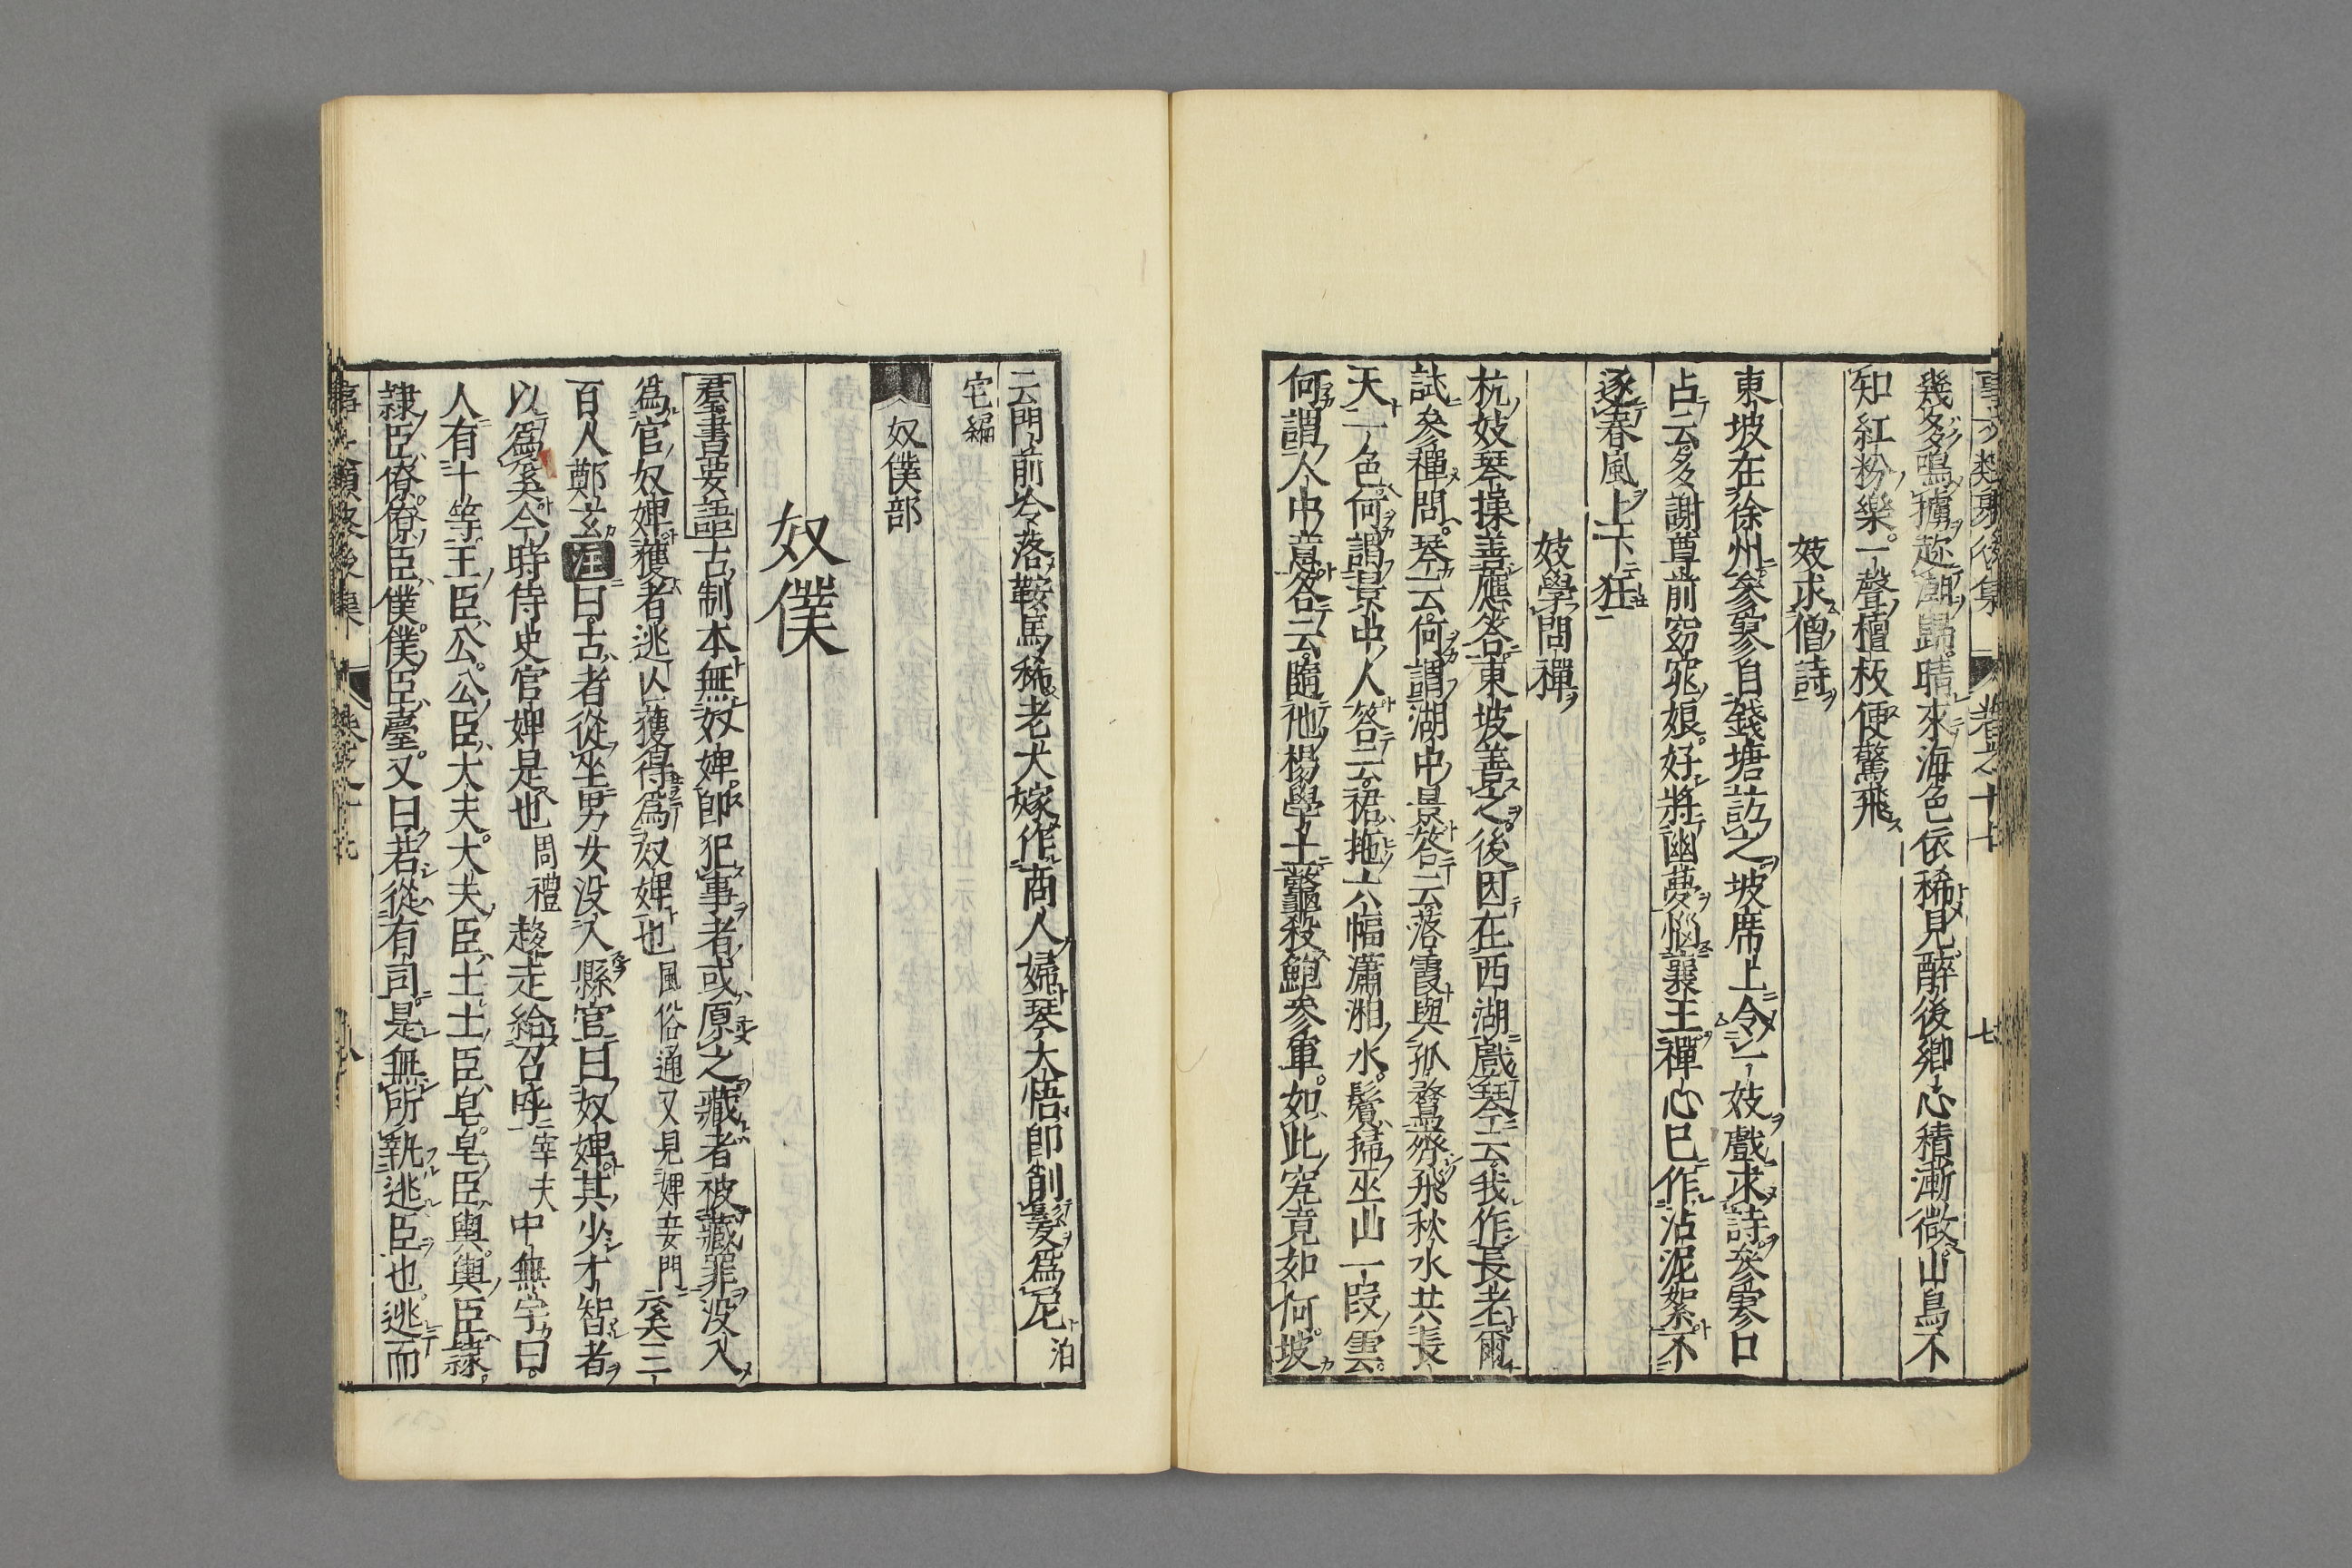 幾多鳴擄趂潮歸晴來海色依稀見醉後鄉心積漸微山鳥不
知紅粉樂一聲檀板便驚飛
妓求僧詩
東坡在徐州參寥自錢塘訪之坡席上令一妓戲求詩參寥口
占云多謝尊前窈窕娘好將幽夢惱襄王禪心已作沾泥絮不
逐春風上下狂
妓學問禪
杭妓琴操善應答東坡善之後因在西湖戲琴云我作長老爾
試參禪問琴云何謂湖中景答云落霞與孤鶩齊飛秋水共長
天一色何謂景中人答云裙拖六幅瀟湘水鬢掃巫山一段雲
何謂人中意答云隨他楊學士鱉殺鮑參軍如此究竟如何坡
云門前冷落鞍馬稀老大嫁作商人婦琴大悟卽削髮爲尼 泊
宅編
奴僕部
奴僕
羣書要語古制本無奴婢卽犯事者或原之藏者被藏罪没入
爲官奴婢獲者逃亾獲得爲奴婢也 風俗通又見婢妾門 奚三
百人鄭玄注曰古者從坐男女没入縣官曰奴婢其少才智者
以爲奚今時侍史官婢是也 周禮 趍走給召呼 宰夫 申無宇曰
人有十等王臣公公臣大夫大夫臣士士臣皂皂臣輿輿臣隷
隷臣僚僚臣僕僕臣臺又曰若從有司是無所執逃臣也逃而